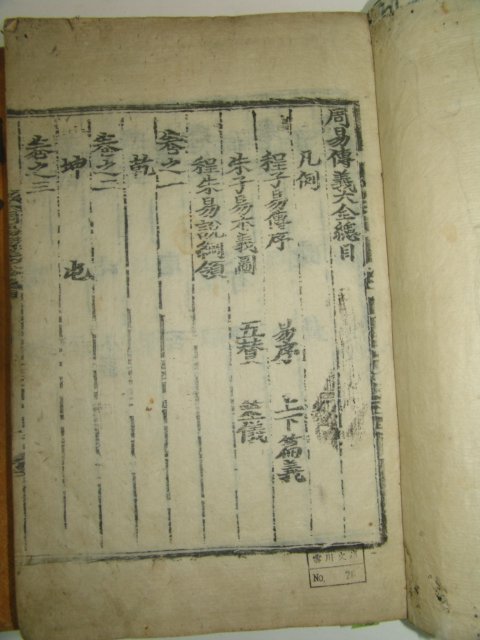 周易傳義大全總目
凡例
程子易傳序 易序 上下篇義
朱子易本義圖 五贊 筮儀
程朱易說綱領
卷之一
乾
卷之二
坤 屯
卷之三
No. 26